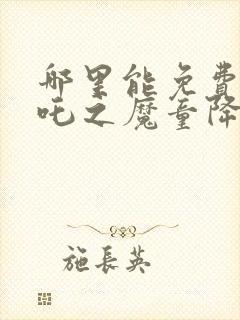 那里能免费
吒之魔童降
施長英